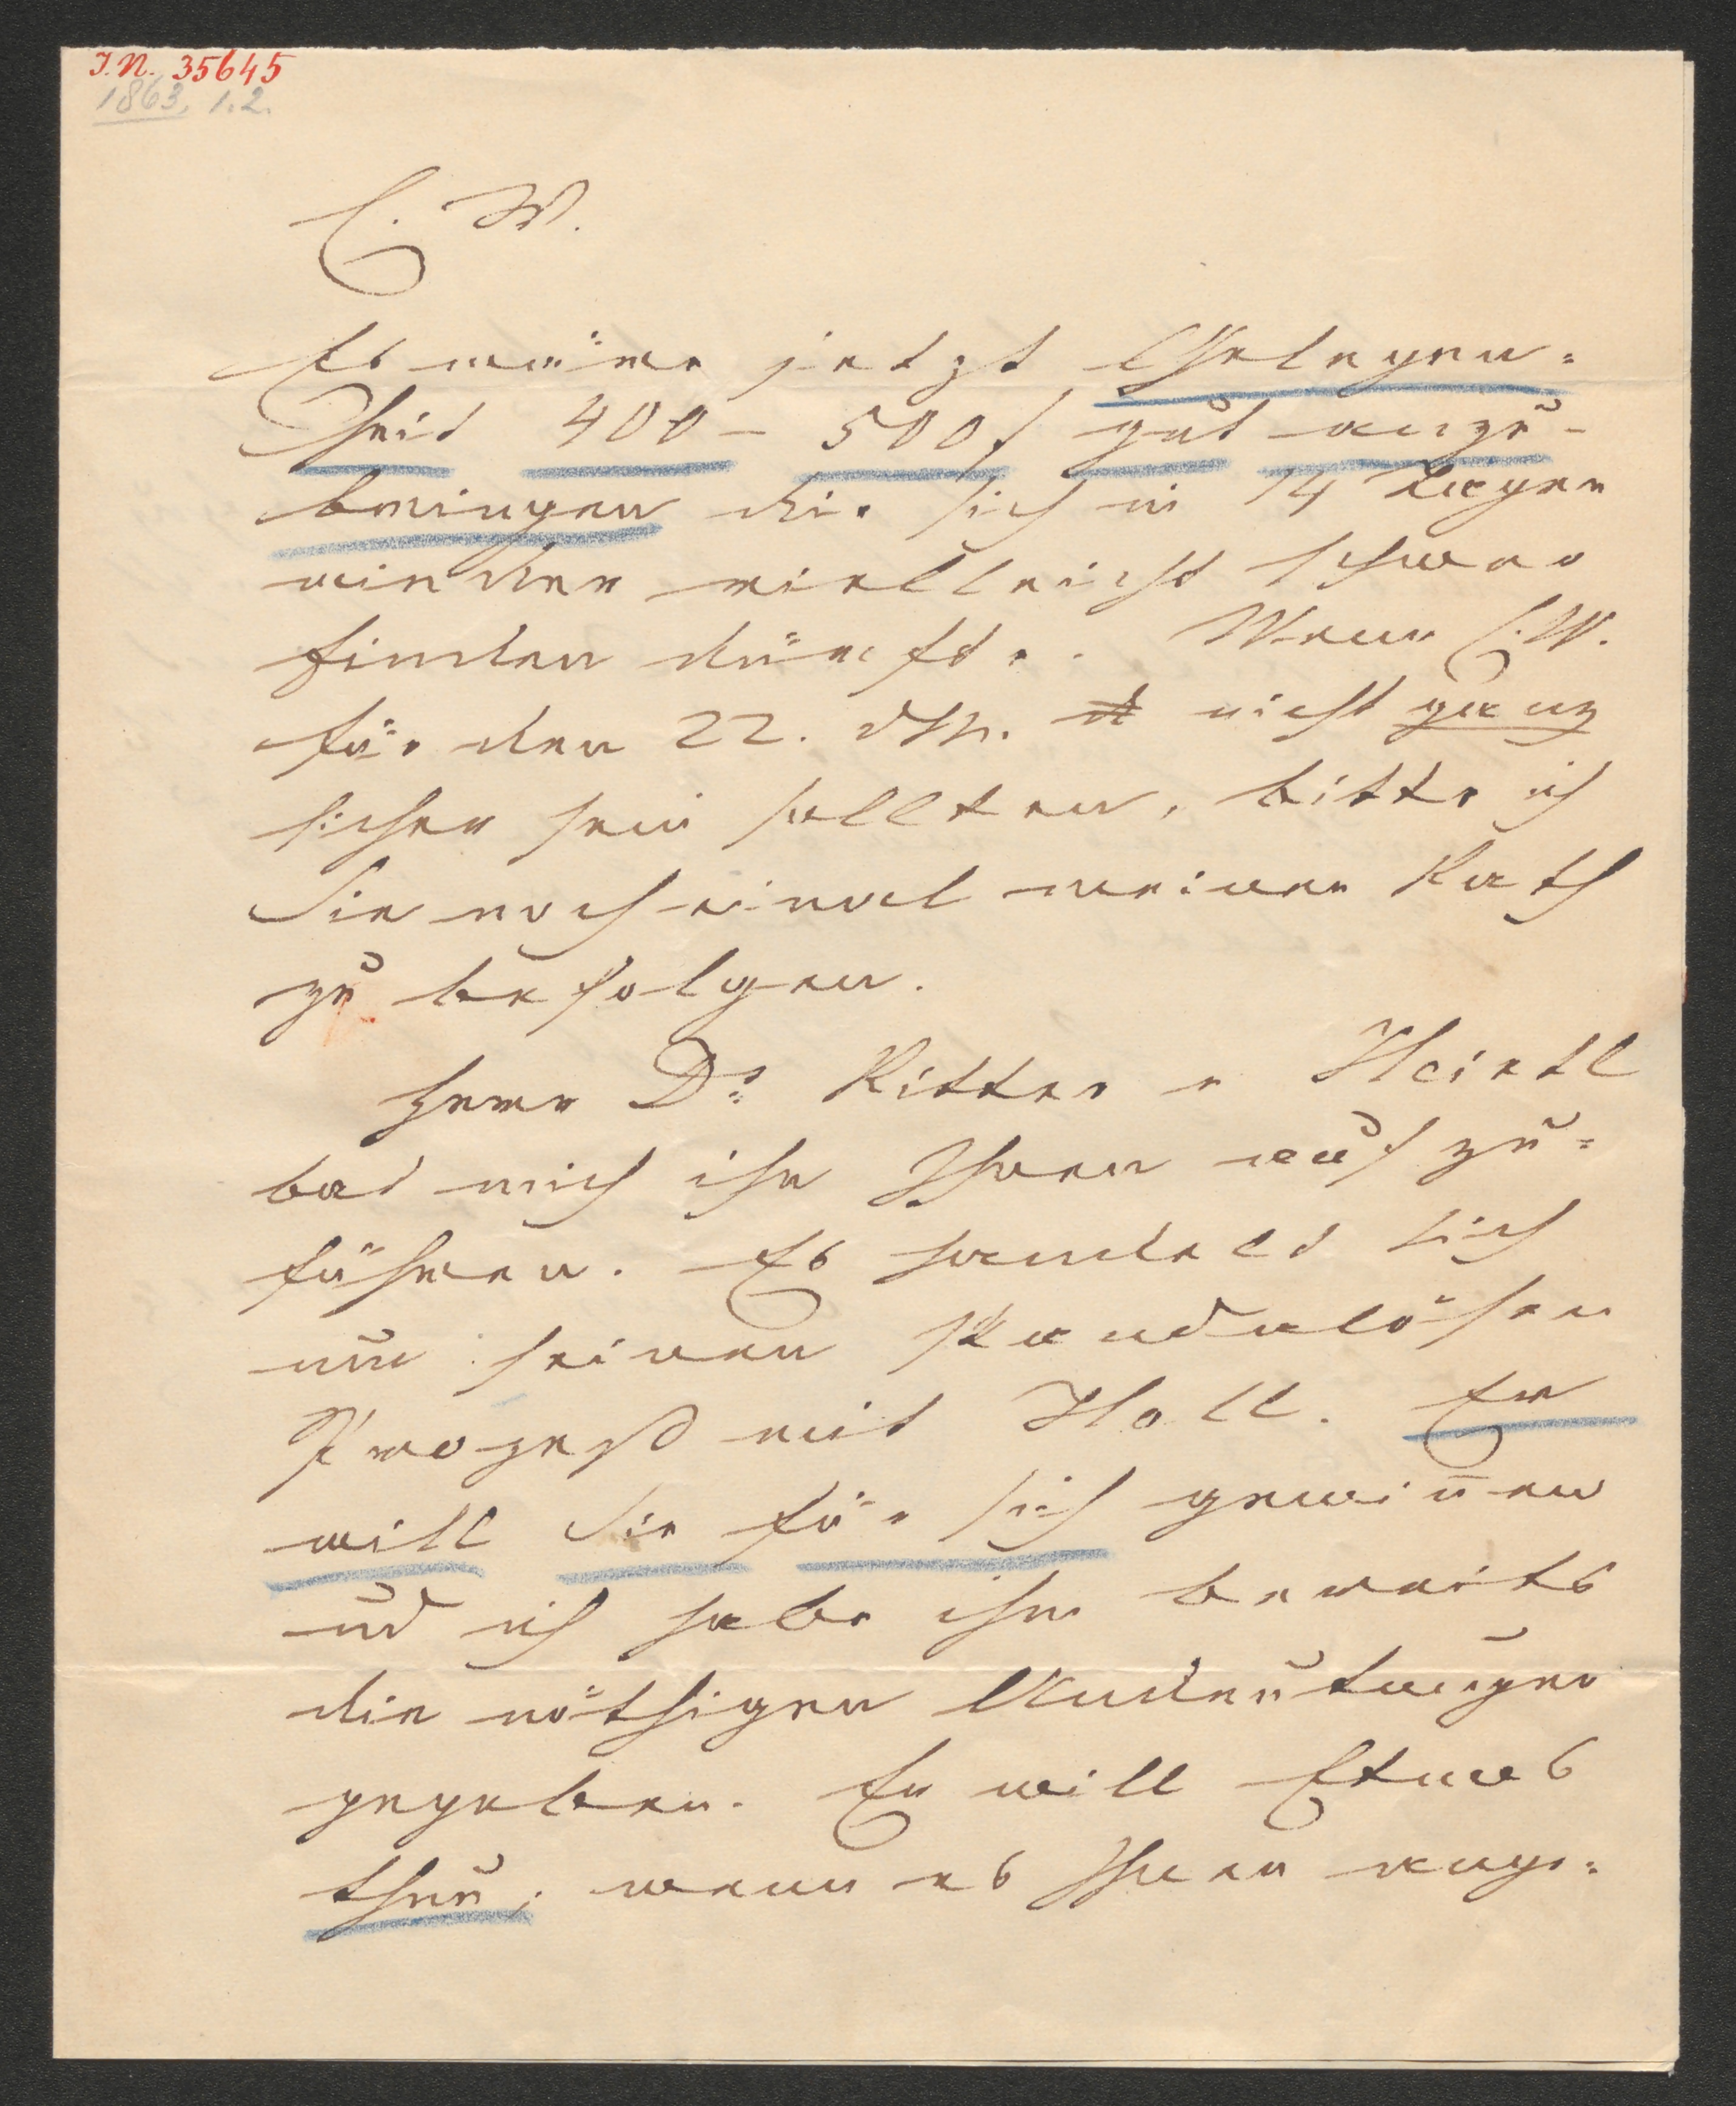 I.N. 35645
1863, 1.2.
E. W.
Es wäre jetzt Gelegen=
heit 400 – 500 f gut anzu-
bringen die sich in 14 Tagen
minder vielleicht schwer
finden dürfte. Wenn E. W.
für den 22. nicht ganz
sicher sein sollten, bitte ich
Sie noch einmal meinen Rath
zu befolgen.
Herr Dr Ritter v Heintl
bat mich ihn Ihnen aufzu=
führen. Es handelt sich
um seinen skandalösen
Prozeß mit Holl. Er
will Sie für sich gewin̄en
und ich habe ihm bereits
die nöthigen Andeutungen
gegeben. Er will Etwas
thun, wenn es Ihnen ange=